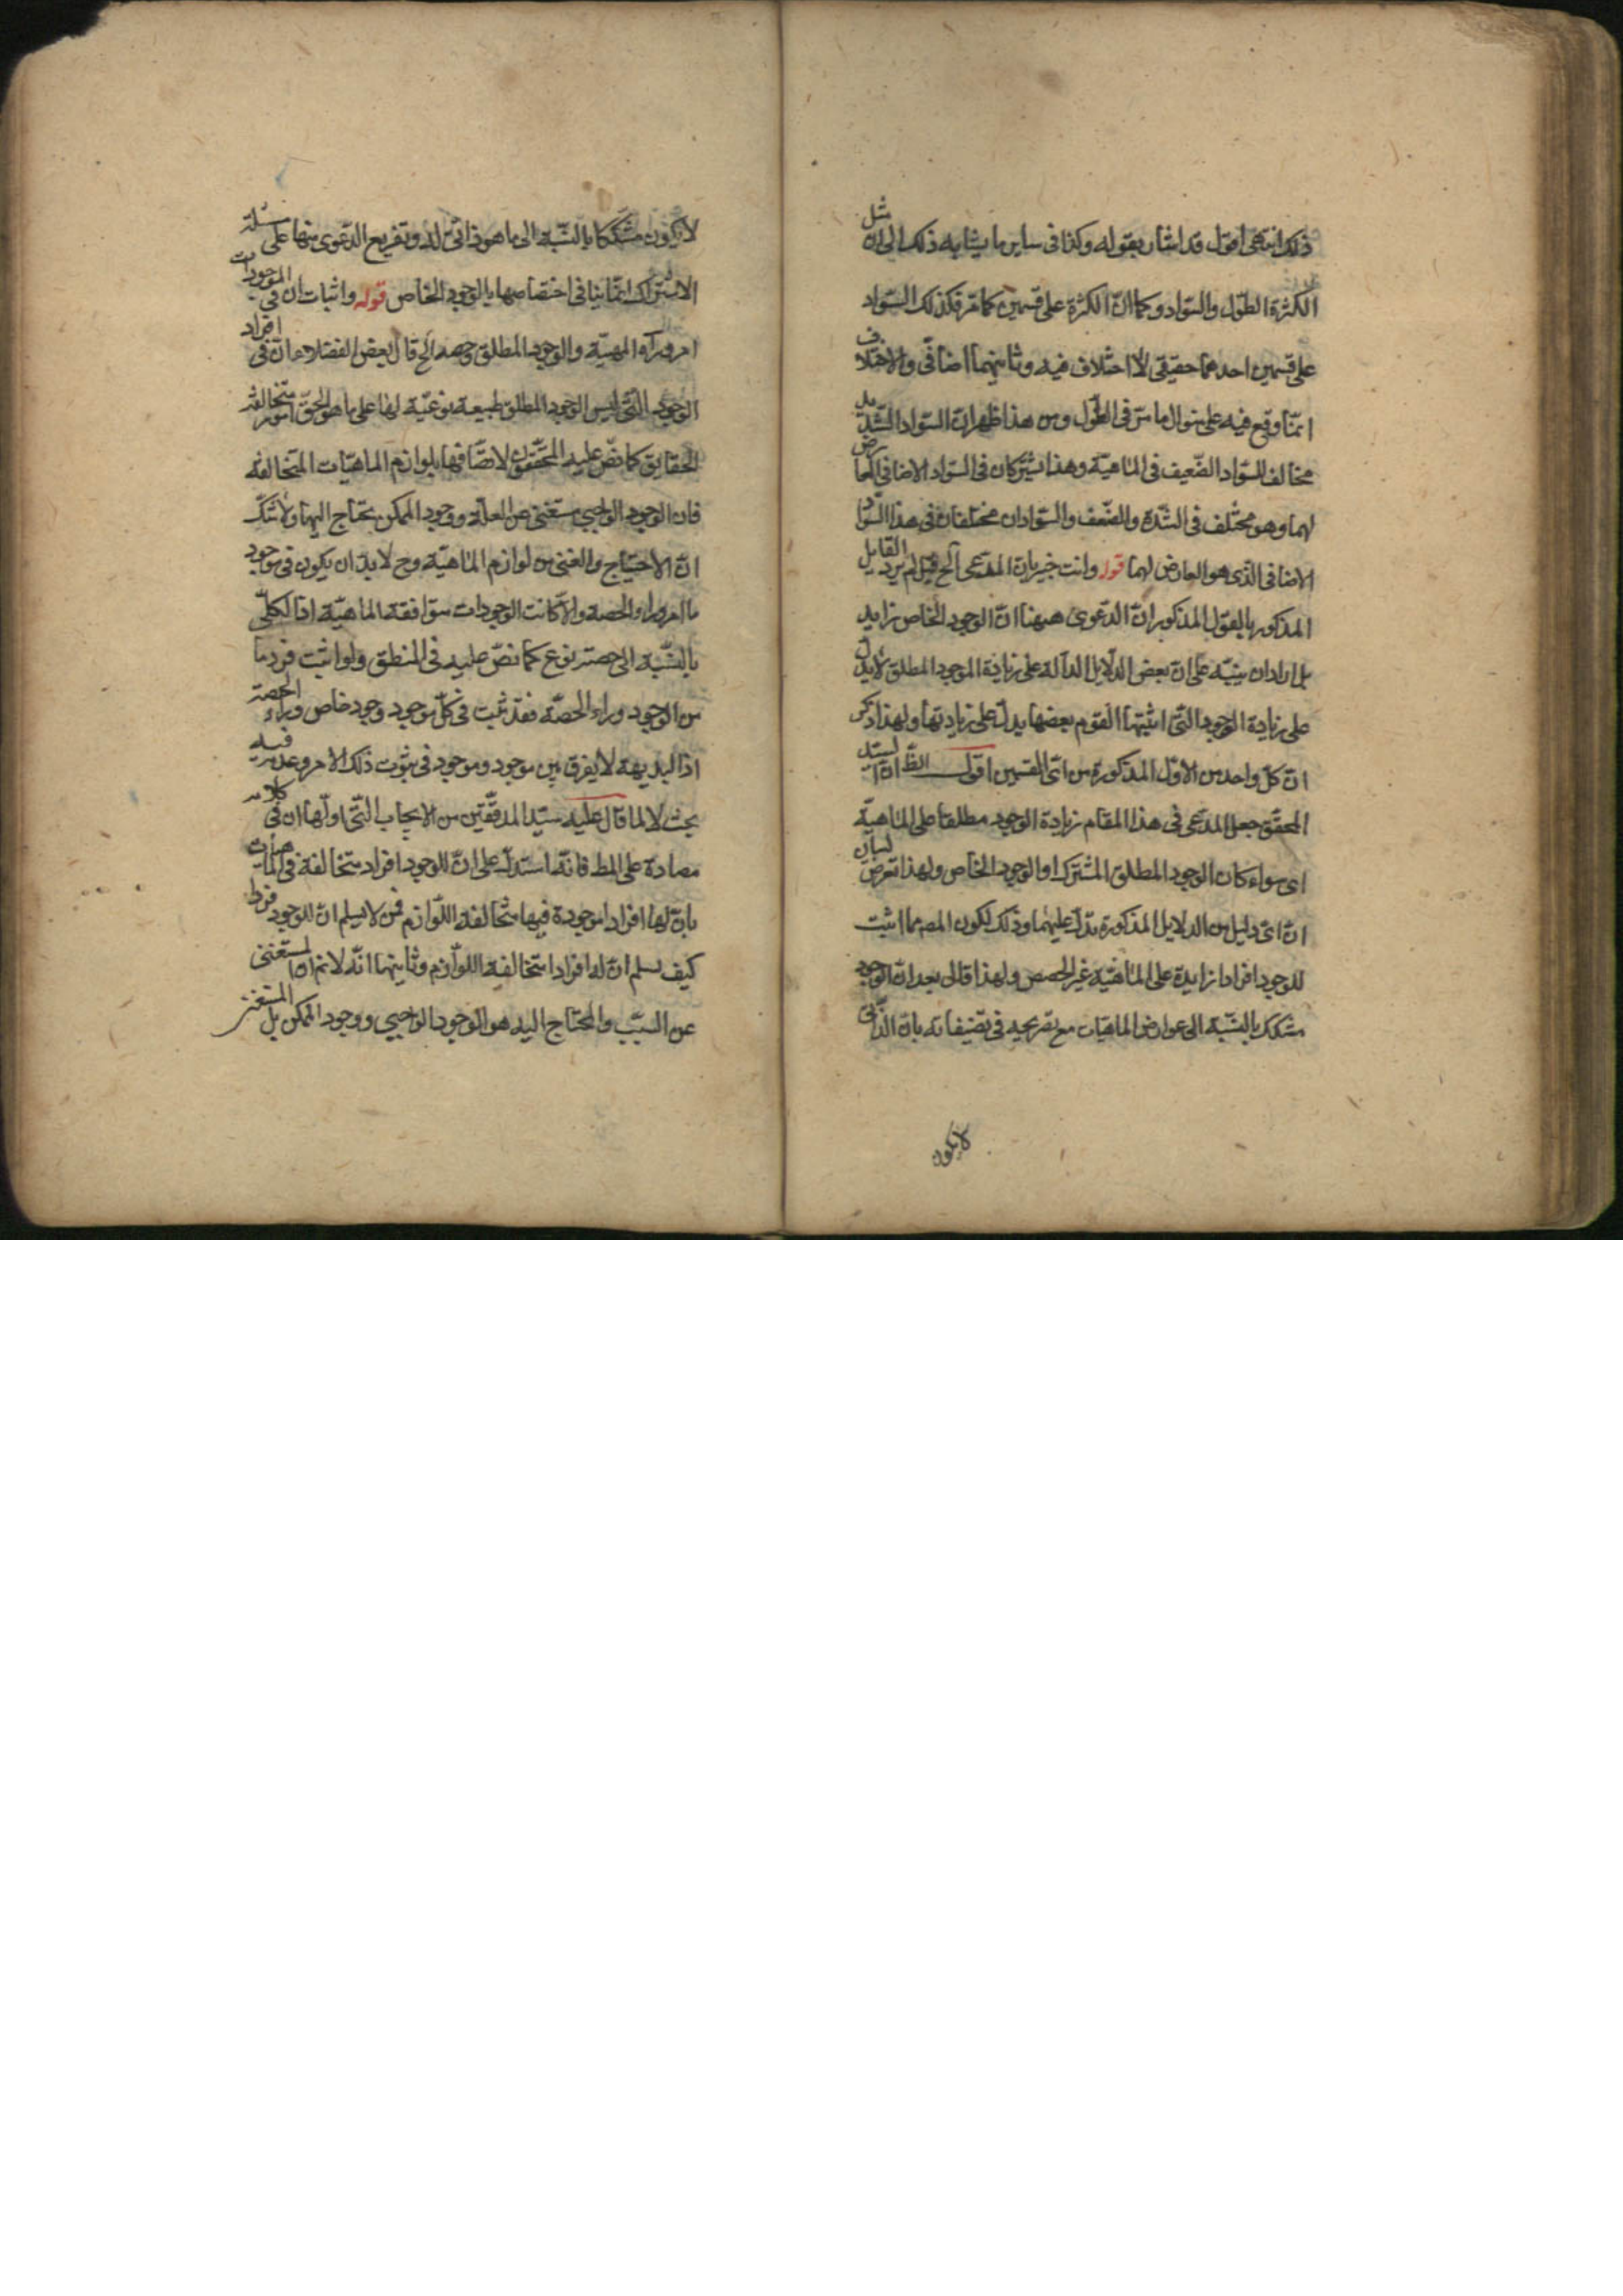 ذلك انتهى اقول قد اشار بقوله وكذا فى ساير ما يشابه ذلك الى ان مثل
الكثرة الطول والسواد وكما انّ الكثرة على قسمين كما مر فكذلك السواد
على قسمين احدهما حقيقى لا اختلاف فيه وثانيهما اضافى والاختلاف
انما وقع فيه على منوال ما مر فى الطول ومن هذا ظهر ان السواد الشديد
مخالف للسواد الضعيف فى الماهية وهذا يشتركان فى السواد الاضافى العارض
لهما وهو مختلف فى الشدة والضعف والسوادان مختلفان فى هذا السواد
الاضافى الذى هو العارض لهما قوله وانت خبير بان المدعى الخ قيل لم يرد القايل
المذكور بالقول المذكور ان الدعوى ههنا ان الوجود الخاص زايد
بل اراد ان ينبه على ان بعض الدلايل الدالة على زيادة الوجود المطلق لا يدل
على زيادة الوجود التى اثبتها القوم بعضها يدل على زيادتها ولهذا ذكر
ان كل واحد من الاول المذكورة من اى القسمين اقول الظ ان السيد
المحقق جعل المدعى فى هذا المقام زيادة الوجود مطلقا على الماهية
اى سواء كان الوجود المطلق المشترك او الوجود الخاص ولهذا تعرض لبيان
ان اى دليل من الدلايل المذكورة يدل عليهما وذلك لكون المصـ مما اثبت
للوجود افرادا زايدة على الماهية غير الحصص ولهذا قال بعد ان الوجود
مشكك بالنسبة الى عوارض الماهيات مع تصريحه فى تصنيفاته بان الذاتى
لا يكون
لا يكون مشككا بالنسبة الى ما هو ذاتى له وتفريع الدعوى منها على مسئلة
الاشتراك انما ينافى اختصاصها بالوجود الخاص قوله واثبات ان فى الموجودات
امر وراء المهية والوجود المطلق وحصه الخ قال بعض الفضلاء ان فى افراد
الوجود التى ليس الوجود المطلق طبيعة نوعية لها على ما هو الحق امور متخالفة
الحقايق كما نص عليه المحققون لاتصافها بلوازم الماهيات المتخالفة
فان الوجود الواجبى مستغنى عن العلة ووجود الممكن يحتاج اليها ولا شك
ان الاحتياج والغنى من لوازم الماهية وح لا بد ان يكون فى موجود
ما امر وراء الحصة والا كانت الوجودات متوافقة الماهية اذ الكلى
بالنسبة الى حصته نوع كما نص عليه فى المنطق ولو اثبت فرد ما
من الوجود وراء الحصة فقد ثبت فى كل موجود وجود خاص وراء الحصة
اذ البديهة لا يفرق بين موجود وموجود فى ثبوت ذلك الامر وعدمه فيه
بحث لا لما قال عليه سيد المدققين من الايجاب التى اولها ان فى كلامه
مصادرة على المط فانه استدل على ان للوجود افراد متخالفة فى الماهيات
بان لها افراد موجودة فيها متخالفة اللوازم فمن لا يسلم ان للوجود فردا
كيف يسلم ان له افرادا متخالفة اللوازم وثانيهما انه لا نم ان المستغنى
عن السبب والمحتاج اليه هو الوجود الواجبى ووجود الممكن بل المستغنى